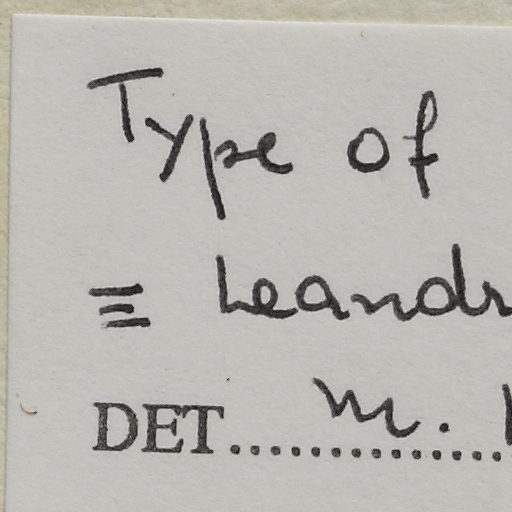 Type of
≡ Leandr
DET.................... M.